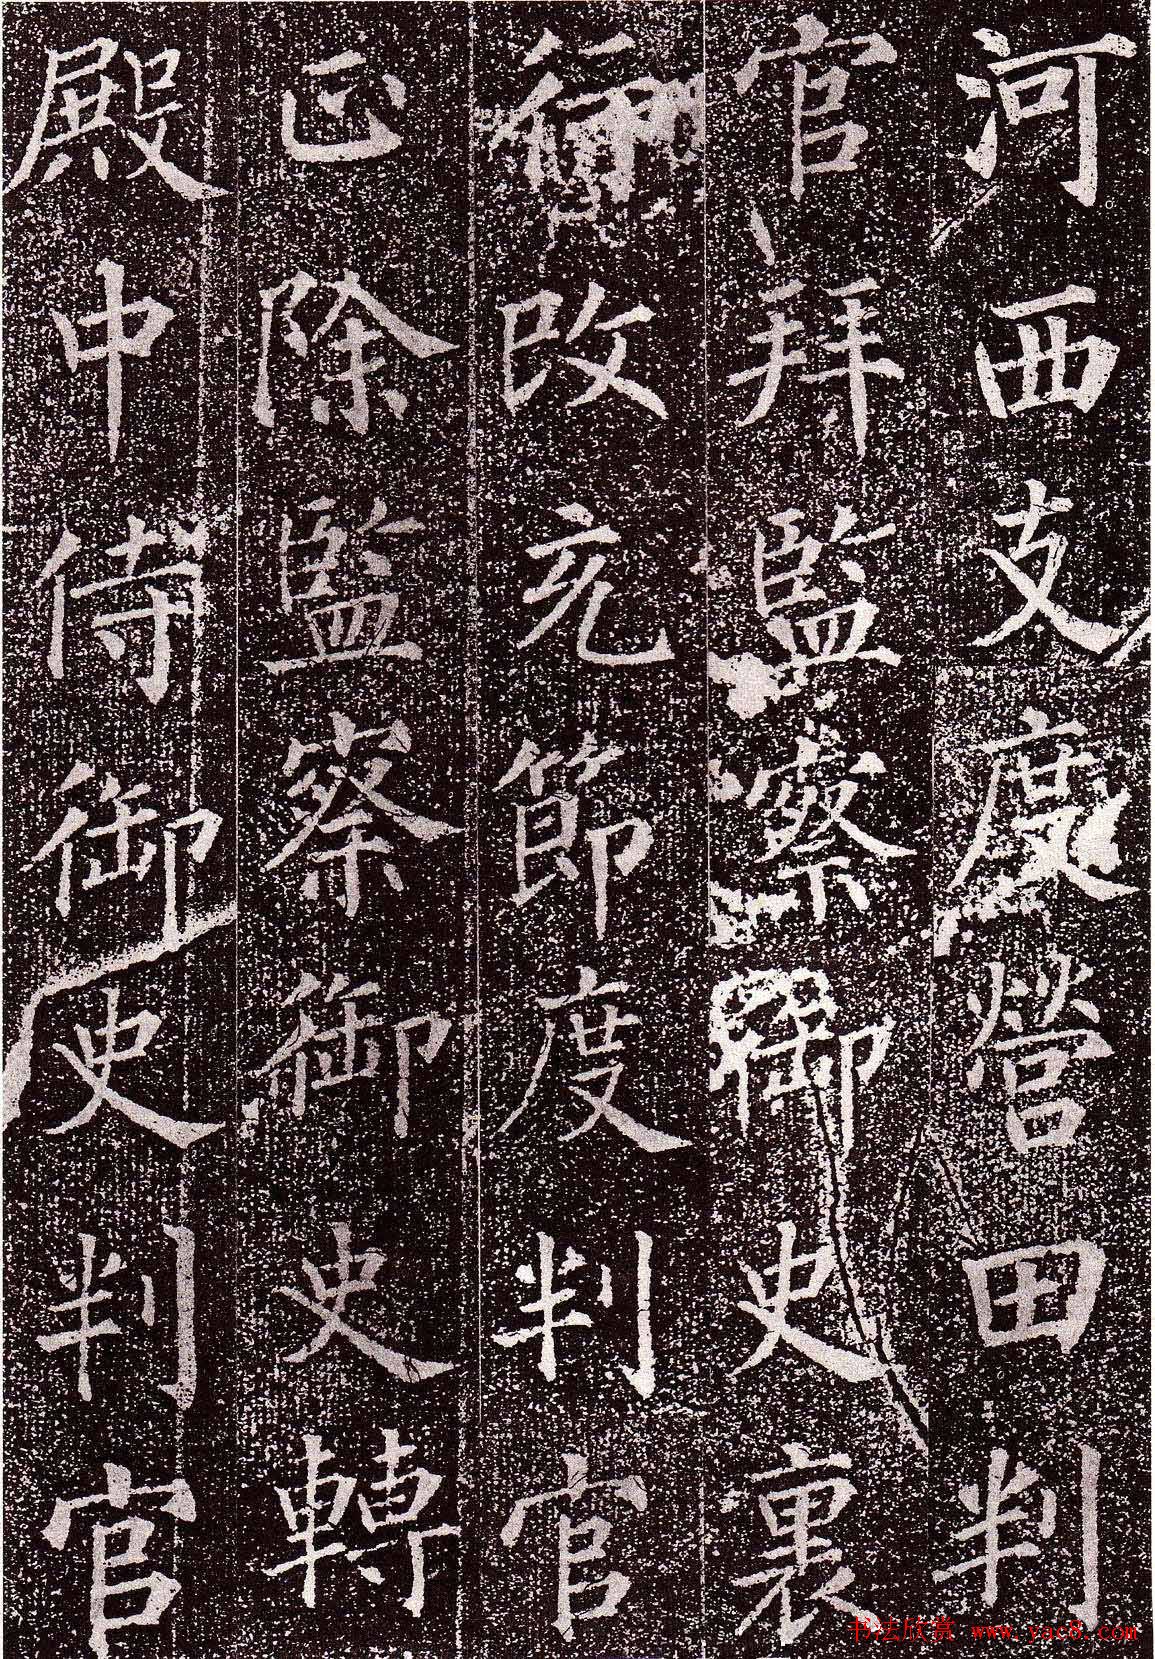 河西支度營田判
官拜監察御史裏
行改充節度判官
正除監察御史轉
殿中侍御史判官
书法欣赏 www.yac8.com